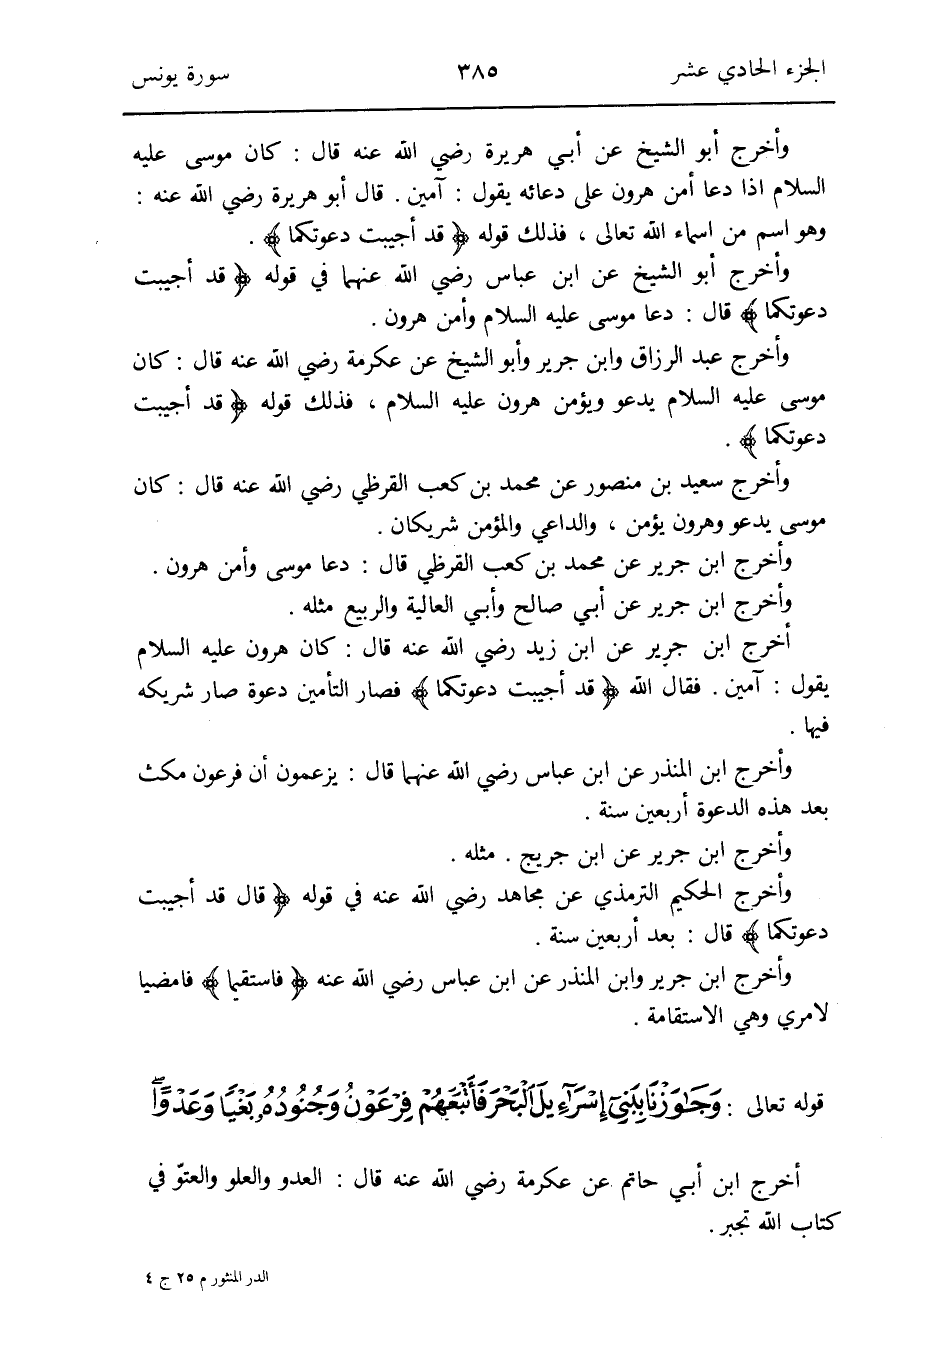 الجزء الحادي عشر ٣٨٥ سورة يونس
وأخرج أبو الشيخ عن أبي هريرة رضي الله عنه قال : كان موسى عليه
السلام اذا دعا أمن هرون على دعائه يقول : آمين . قال أبو هريرة رضي الله عنه :
وهو اسم من اسماء الله تعالى ، فذلك قوله ﴿ قد أجيبت دعوتكما ﴾ .
وأخرج أبو الشيخ عن ابن عباس رضي الله عنهما في قوله ﴿ قد أجيبت
دعوتكما ﴾ قال : دعا موسى عليه السلام وأمن هرون .
وأخرج عبد الرزاق وابن جرير وأبو الشيخ عن عكرمة رضي الله عنه قال : كان
موسى عليه السلام يدعو ويؤمن هرون عليه السلام ، فذلك قوله ﴿ قد أجيبت
دعوتكما ﴾ .
وأخرج سعيد بن منصور عن محمد بن كعب القرظي رضي الله عنه قال : كان
موسى يدعو وهرون يؤمن ، والداعي والمؤمن شريكان .
وأخرج ابن جرير عن محمد بن كعب القرظي قال : دعا موسى وأمن هرون .
وأخرج ابن جرير عن أبي صالح وأبي العالية والربيع مثله .
أخرج ابن جرير عن ابن زيد رضي الله عنه قال : كان هرون عليه السلام
يقول : آمين . فقال الله ﴿ قد أجيبت دعوتكما ﴾ فصار التأمين دعوة صار شريكه
فيها .
وأخرج ابن المنذر عن ابن عباس رضي الله عنهما قال : يزعمون أن فرعون مكث
بعد هذه الدعوة أربعين سنة .
وأخرج ابن جرير عن ابن جريج . مثله .
وأخرج الحكيم الترمذي عن مجاهد رضي الله عنه في قوله ﴿ قال قد أجيبت
دعوتكما ﴾ قال : بعد أربعين سنة .
وأخرج ابن جرير وابن المنذر عن ابن عباس رضي الله عنه ﴿ فاستقيما ﴾ فامضيا
لامري وهي الاستقامة .
قوله تعالى : وَجَٰوَزْنَا بِبَنِىٓ إِسْرَٰٓءِيلَ ٱلْبَحْرَ فَأَتْبَعَهُمْ فِرْعَوْنُ وَجُنُودُهُۥ بَغْيًا وَعَدْوًا ۖ
أخرج ابن أبي حاتم عن عكرمة رضي الله عنه قال : العدو والعلو والعتوّ في
كتاب الله تجبر .
الدر المنثور م ٢٥ ج ٤